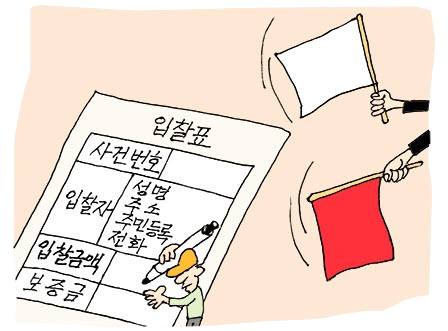 입찰표
사건번호
입찰자
성명
주소
주민등록
전화
입찰금액
보증금